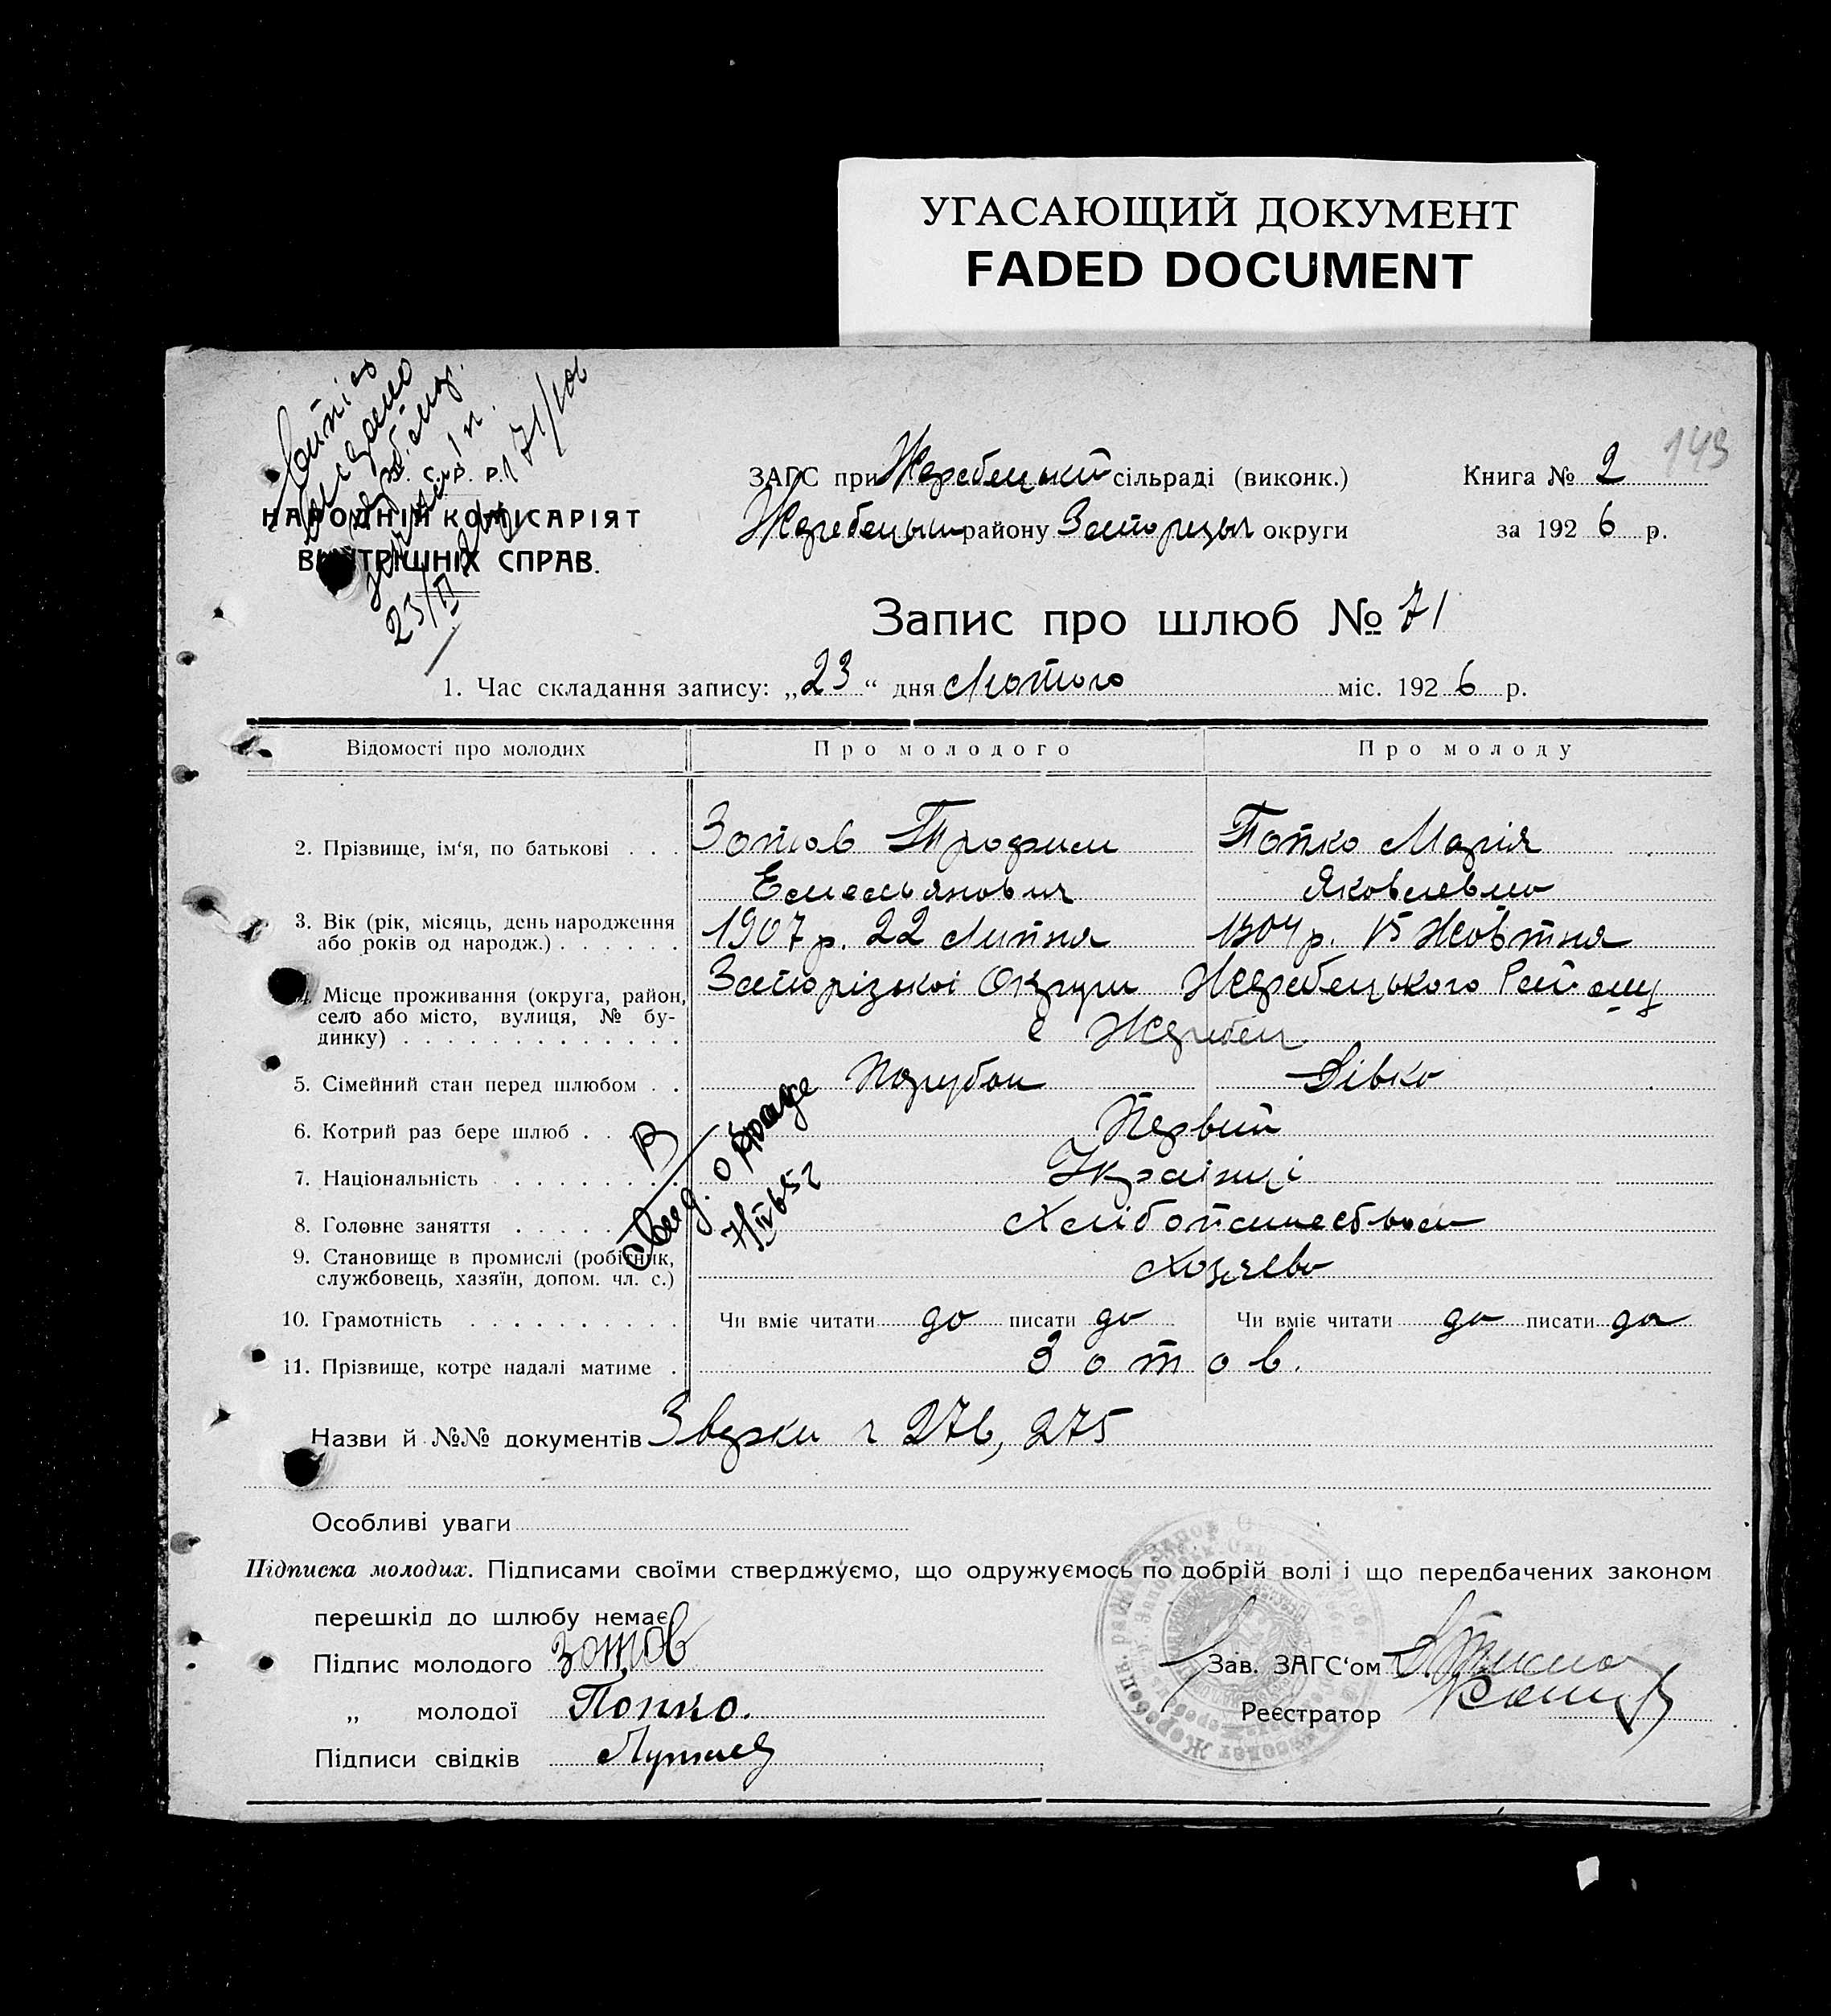 УГАСАЮЩИЙ ДОКУМЕНТ
FADED DOCUMENT
143
Витяг
видано
23/II
71/
У. С. Р. Р.
НАРОДНІЙ КОМІСАРІЯТ
ВНУТРІШНІХ СПРАВ.
ЗАГС при Жеребецькій сільраді (виконк.)
Книга № 2
Жеребецьк району Запорізьк округи
за 1926 р.
Запис про шлюб № 71
1. Час складання запису: „23“ дня Лютого міс. 1926 р.
Відомості про молодих
Про молодого
Про молоду
2. Прізвище, ім‘я, по батькові . . .
Зотов Трофим
Емельянович
Попко Марія
Яковлевна
3. Вік (рік, місяць, день народження
або років од народж.) . . . . . .
1907 р. 22 Липня
1904 р. 15 Жовтня
4. Місце проживання (округа, район,
село або місто, вулиця, № бу-
динку) . . . . . . . . . . . . .
Запорізької Округи Жеребецького Району
с Жеребец
5. Сімейний стан перед шлюбом . .
Парубок
Дівка
6. Котрий раз бере шлюб . . .
Первий
7. Національність . . . . . . . .
Українці
8. Головне заняття . . . . .
Хлібопашеством
9. Становище в промислі (робітник,
службовець, хазяїн, допом. чл. с.)
Хозяева
10. Грамотність . . . . . . . . . .
Чи вміє читати да писати да
Чи вміє читати да писати да
11. Прізвище, котре надалі матиме .
Зотов.
В
Свид. о браке
Назви й №№ документів Зверки ч 276, 275
Особливі уваги
Підписка молодих. Підписами своїми стверджуємо, що одружуємось по добрій волі і що передбачених законом
перешкід до шлюбу немає.
Підпис молодого Зотов
„ молодої Попко.
Підписи свідків
Зав. ЗАГС‘ом
Реєстратор